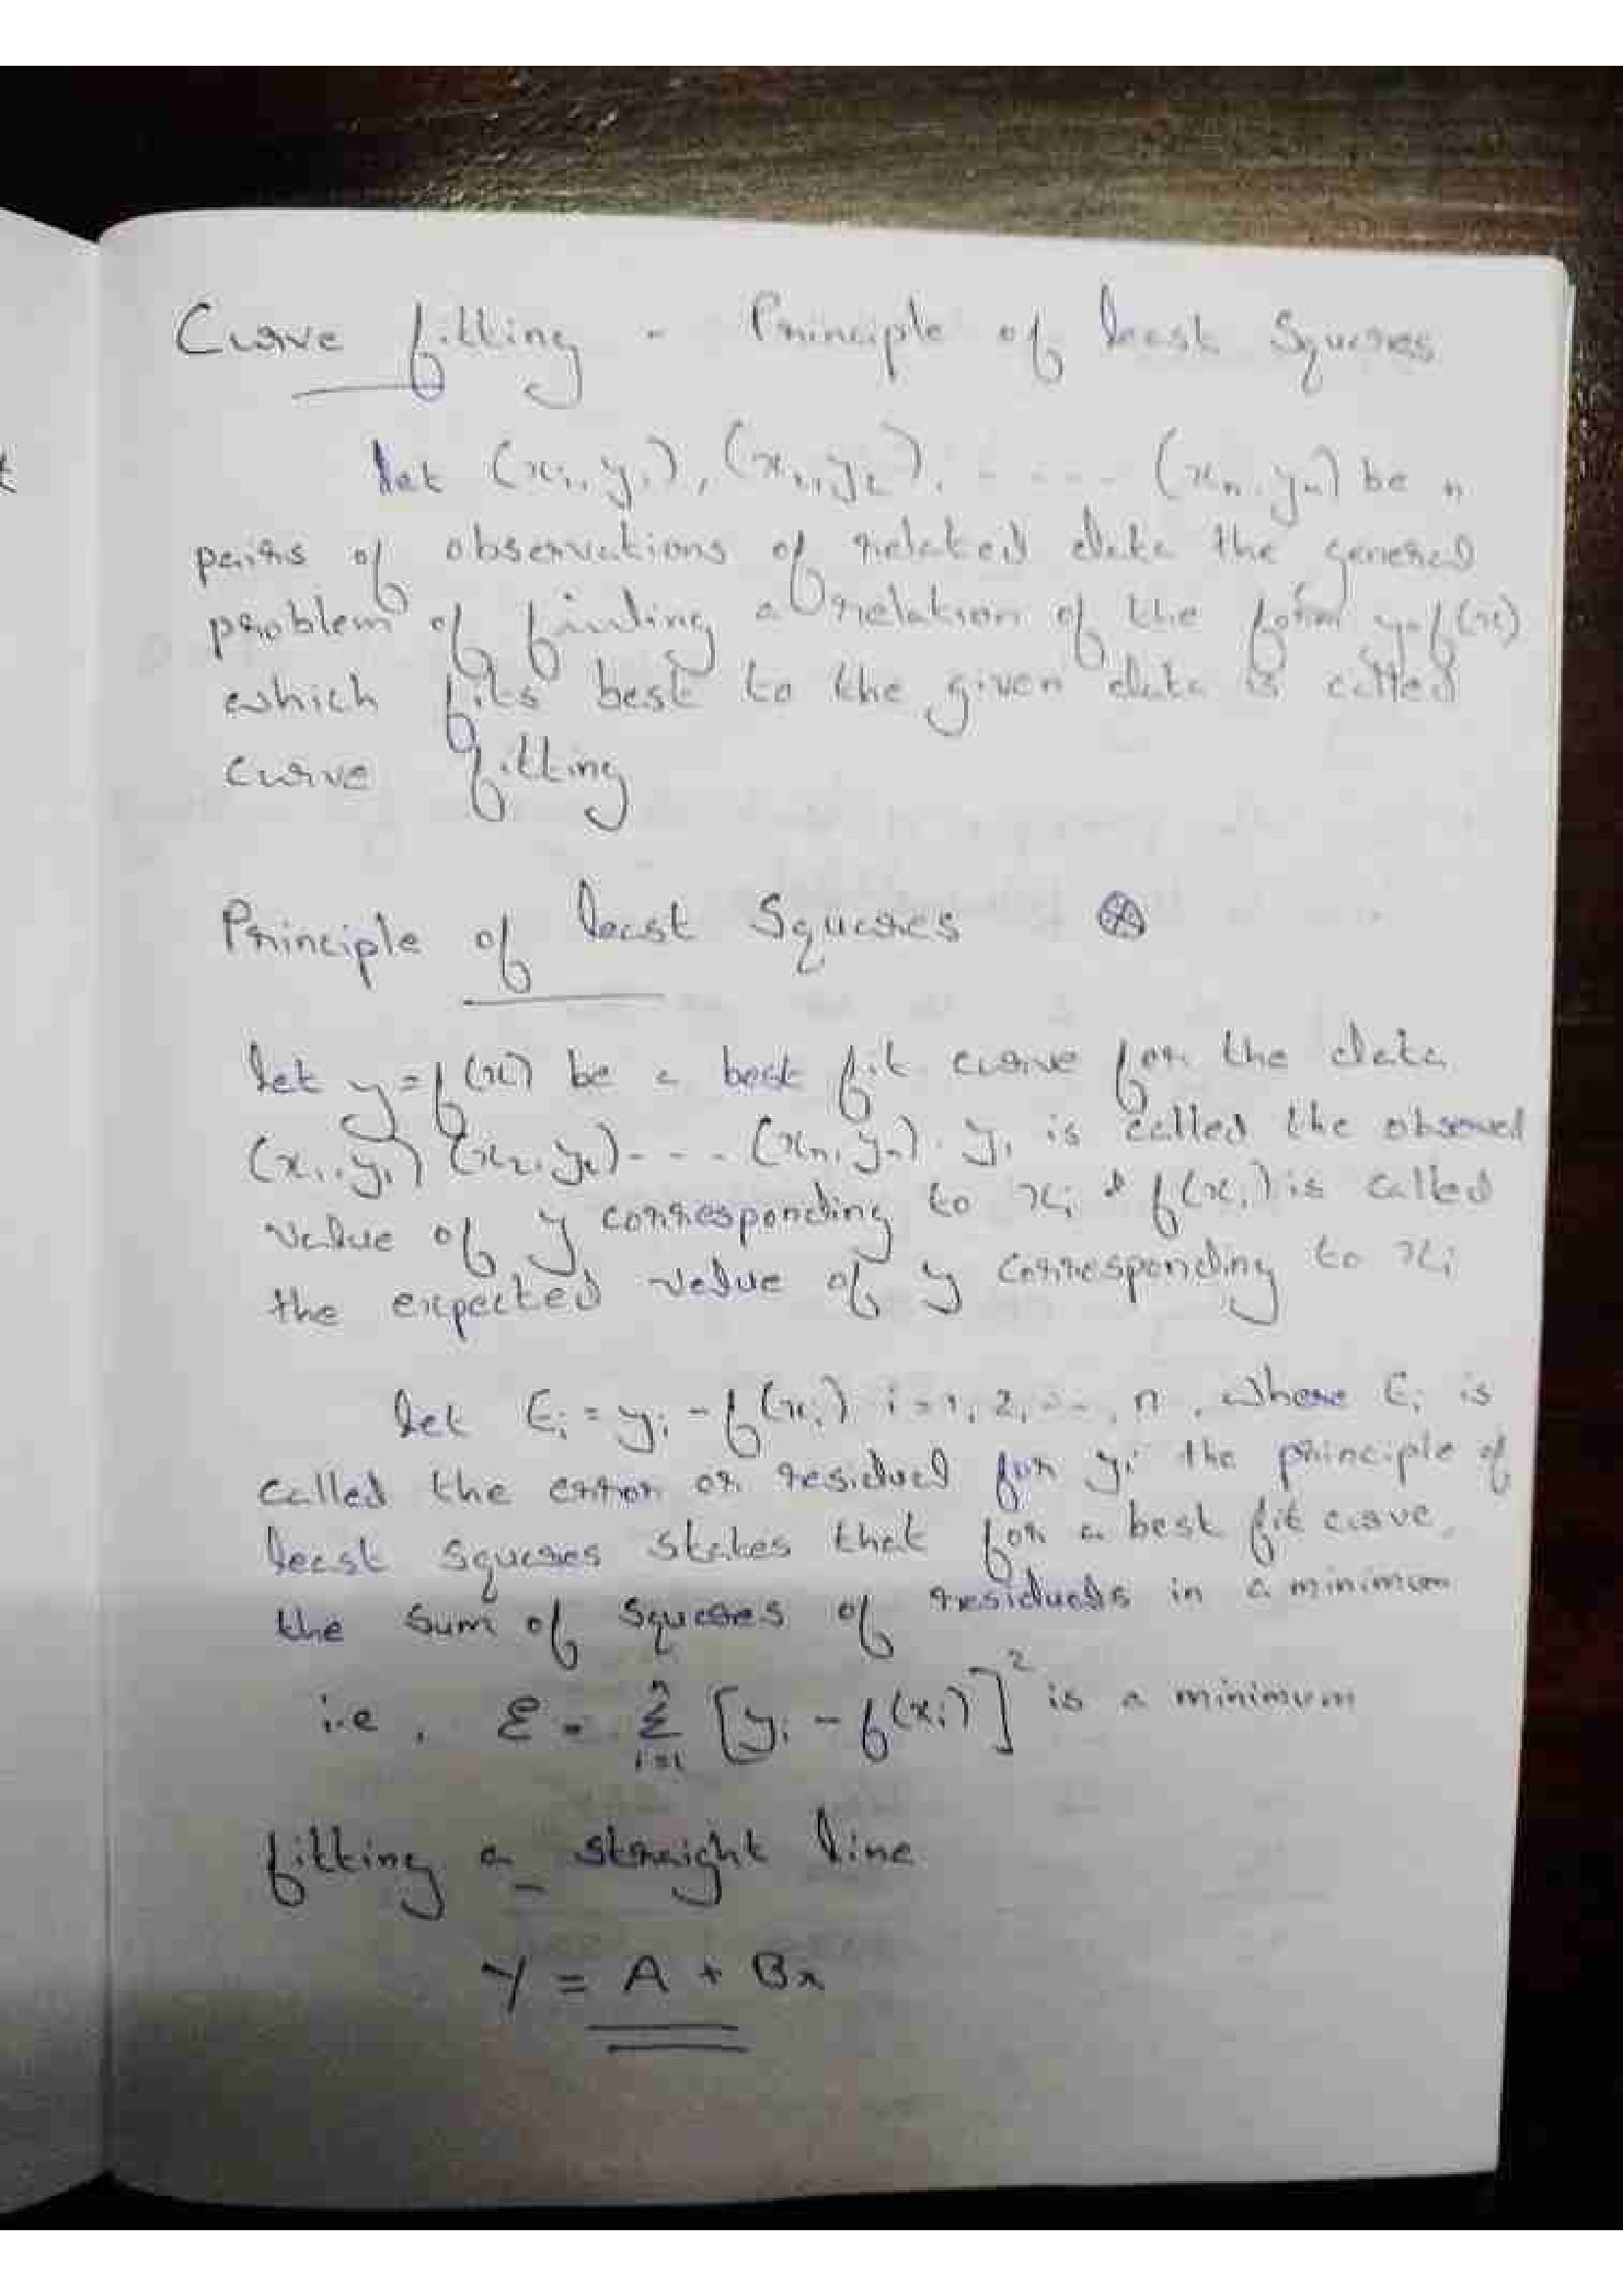 Curve fitting - Principle of least Squares
let (x₁, y₁), (x₂, y₂), ..... (xₙ, yₙ) be n
pairs of observations of related data the general
problem of finding a relation of the form y=f(x)
which fits best to the given data is called
curve fitting
Principle of least Squares ⊛
let y=f(x) be a best fit curve for the data
(x₁, y₁) (x₂, y₂)--- (xₙ, yₙ). yᵢ is called the observed
value of y corresponding to xᵢ & f(xᵢ) is called
the expected value of y corresponding to xᵢ
let Eᵢ = yᵢ - f(xᵢ) i=1, 2, ..., n, where Eᵢ is
called the error or residual for yᵢ the principle of
least squares states that for a best fit curve,
the sum of squares of residuals in a minimum
i.e, E = Σⁿᵢ₌₁ [yᵢ - f(xᵢ)]² is a minimum
fitting a straight line
Y = A + Bx